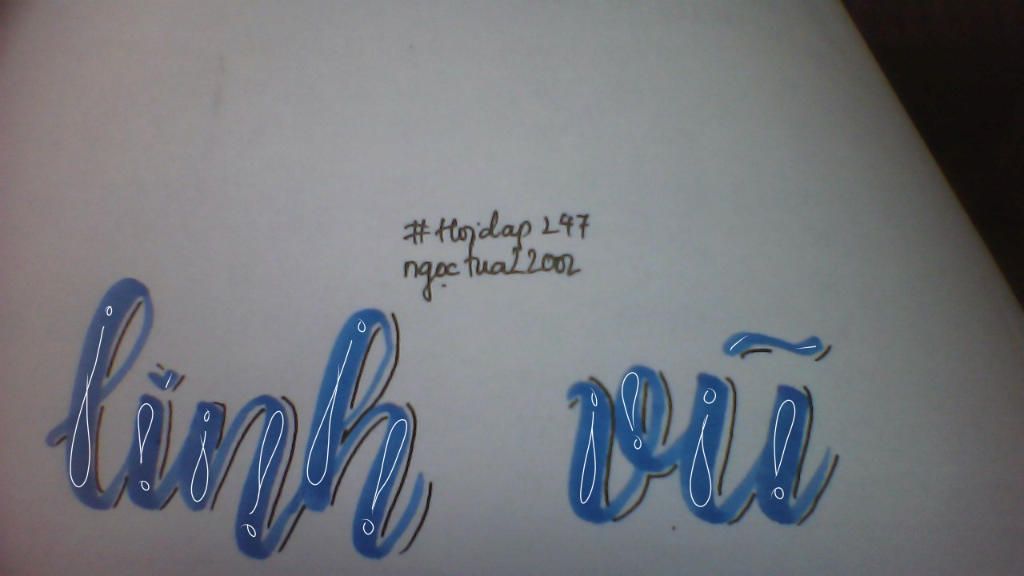 #Hoidap 247
ngọc tua22002
linh vũ